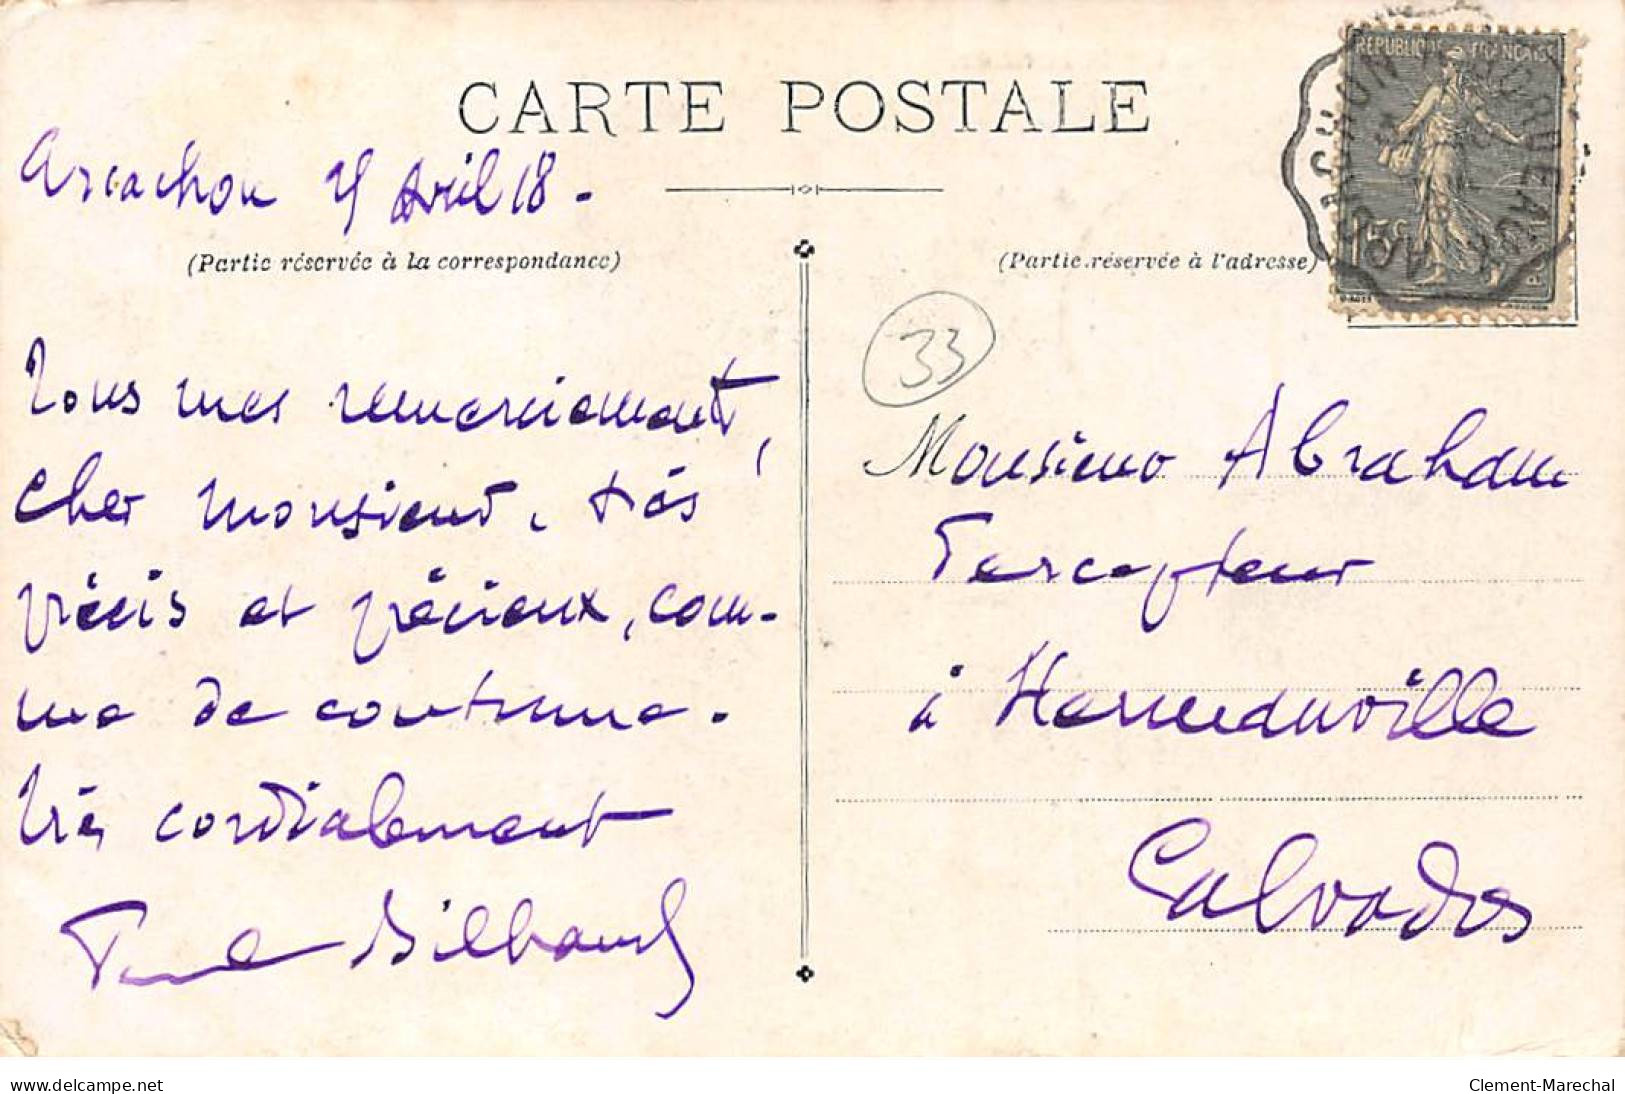 CARTE POSTALE
Arcachon 25 Avril 18.
(Partie réservée à la correspondance)
(Partie réservée à l'adresse)
RÉPUBLIQUE FRANÇAISE
15c
33
Tous mes remerciements,
cher monsieur, très
précis et précieux, com-
me de coutume.
Très cordialement
Paul
Monsieur Abraham
Percepteur
à Hermanville
Calvados
www.delcampe.net
Clement-Marechal